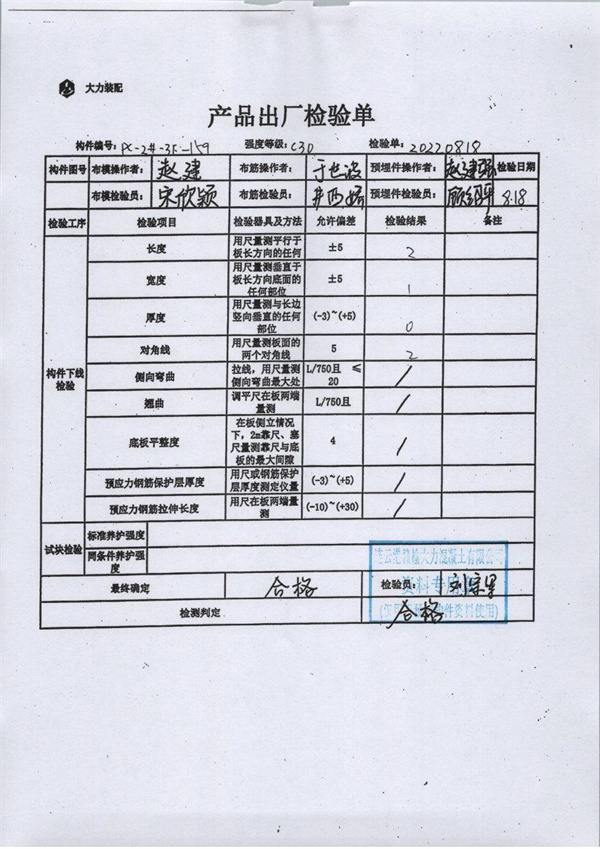 大力装配
产品出厂检验单
构件编号: PC-2#-3F-159 强度等级: C30 检验单: 20220818
构件图号 布模操作者: 赵建 布筋操作者: 于世波 预埋件操作者: 赵建 检验日期
布模检验员: 宋欣颖 布筋检验员: 预埋件检验员: 8.18
检验工序 检验项目 检验器具及方法 允许偏差 检验结果 备注
构件下线检验
长度 用尺量测平行于板长方向的任何 ±5 2
宽度 用尺量测垂直于板长方向底面的任何部位 ±5 1
厚度 用尺量测与长边竖向垂直的任何部位 (-3)~(+5) 0
对角线 用尺量测板面的两个对角线 5 2
侧向弯曲 拉线,用尺量测侧向弯曲最大处 L/750且 ≤20 /
翘曲 调平尺在板两端量测 L/750且 /
底板平整度 在板侧立情况下,2m靠尺、塞尺量测靠尺与底板的最大间隙 4 /
预应力钢筋保护层厚度 用尺或钢筋保护层厚度测定仪量 (-3)~(+5) /
预应力钢筋拉伸长度 用尺在板两端量测 (-10)~(+30) /
试块检验 标准养护强度
同条件养护强度
最终确定 合格 检验员:
检测判定 合格
大力混凝土有限公司
资料专用